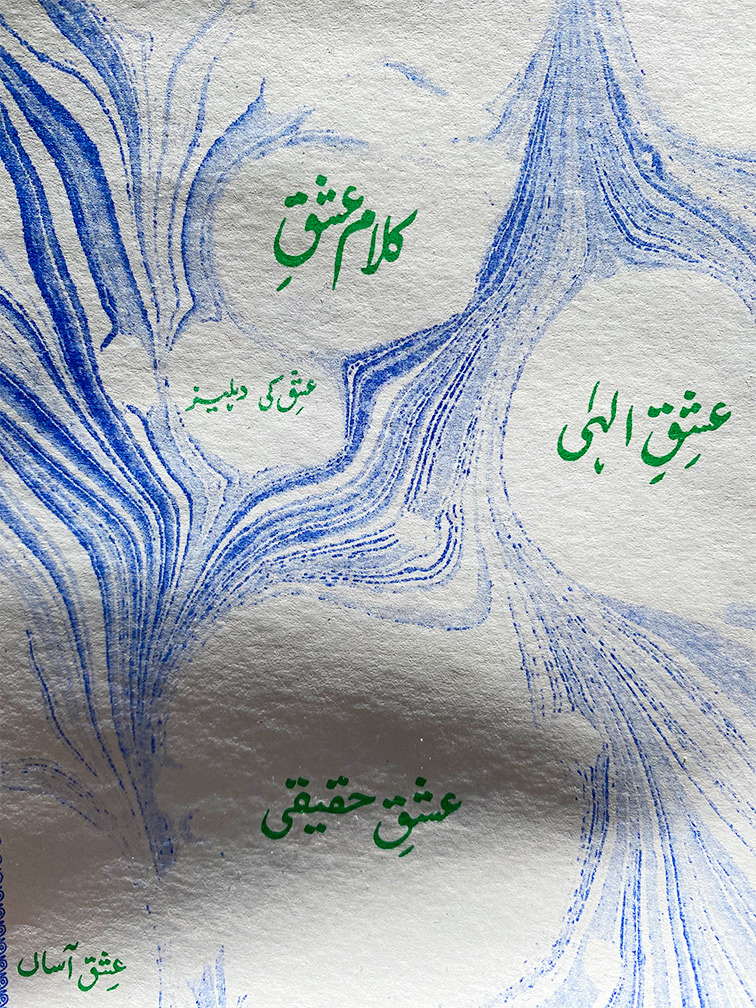 کلام عشقِ
عشق کی دہلیز
عشقِ الہٰی
عشقِ حقیقی
عشق آساں